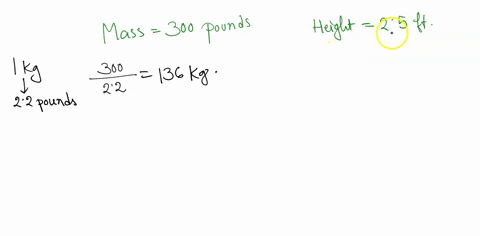 Mass = 300 pounds
Height = 2.5 ft.
1 kg
300
2.2
= 136 kg.
2.2 pounds